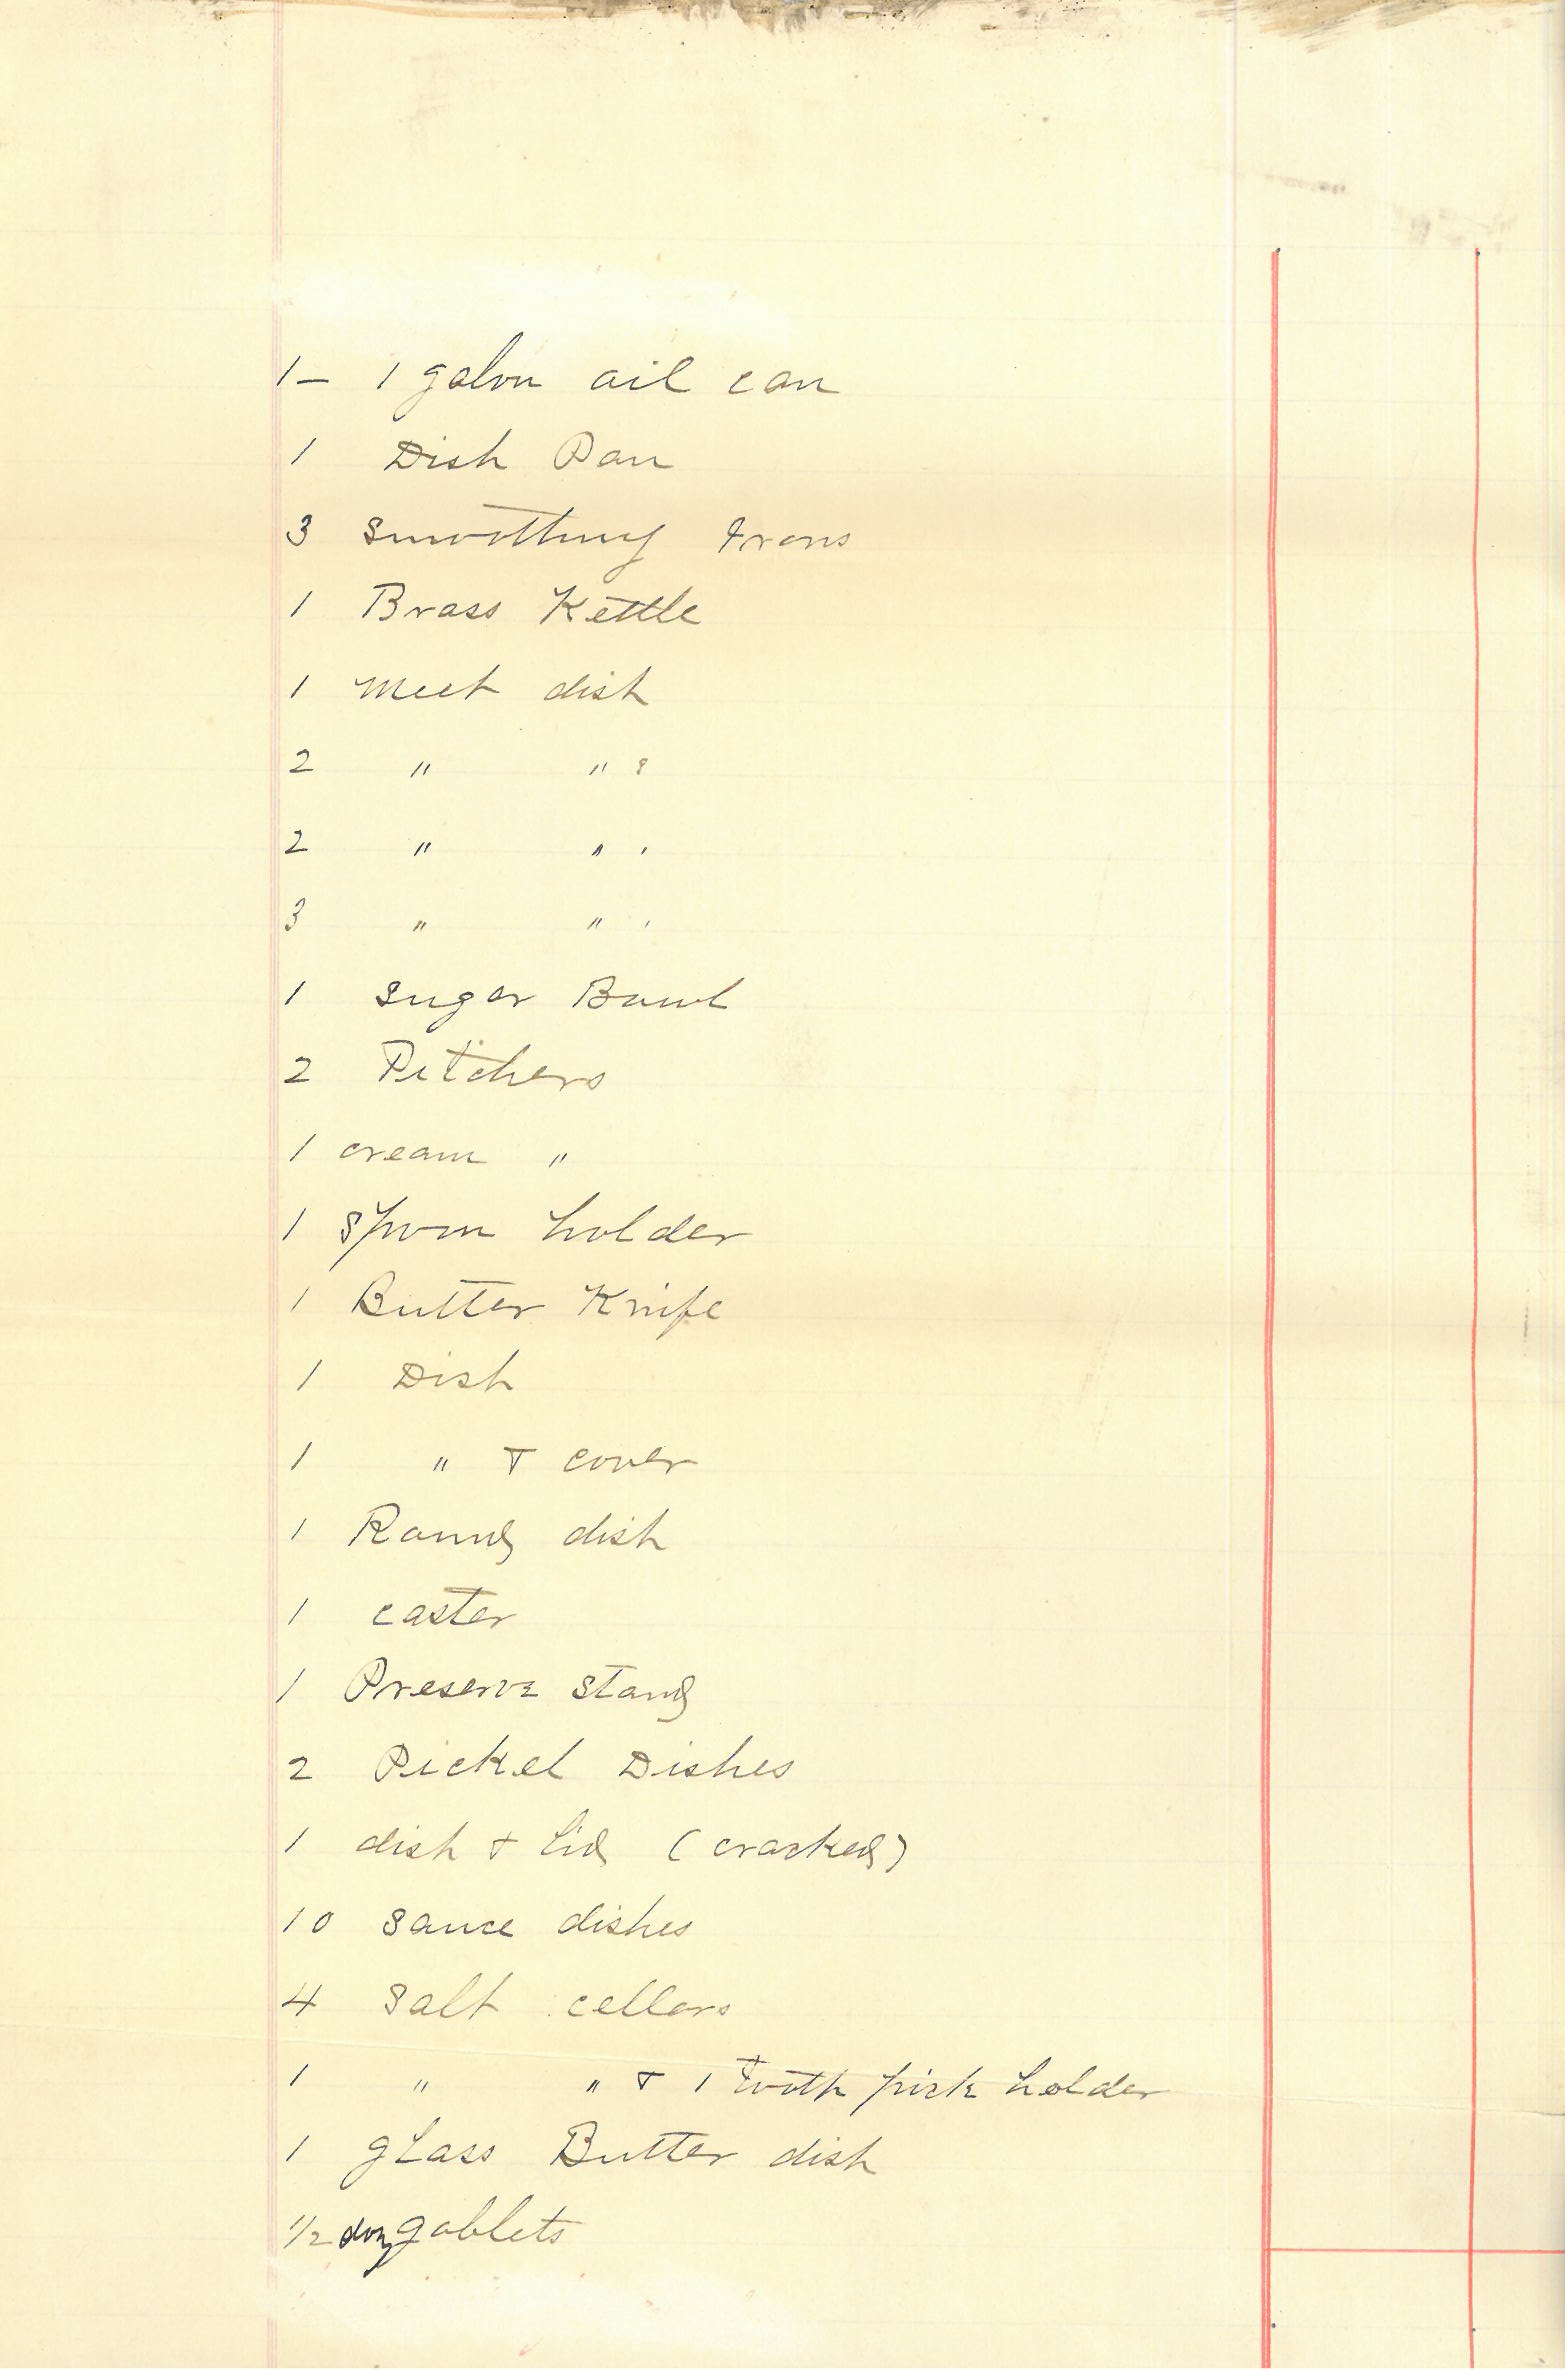 1 – 1 galon oil can
1 Dish Pan
3 Smoothing Irons
1 Brass Kettle
1 Meet dish
2 " " s
2 " " '
3 " " '
1 Suger Bowl
2 Pitchers
1 cream "
1 Spoon holder
1 Butter Knife
1 Dish
1 " + cover
1 Round dish
1 caster
1 Preserve Stand
2 Pickel Dishes
1 dish + Lid (cracked)
10 Sauce dishes
4 Salt cellars
1 " " + 1 tooth pick holder
1 glass Butter dish
1/2 doz goblets